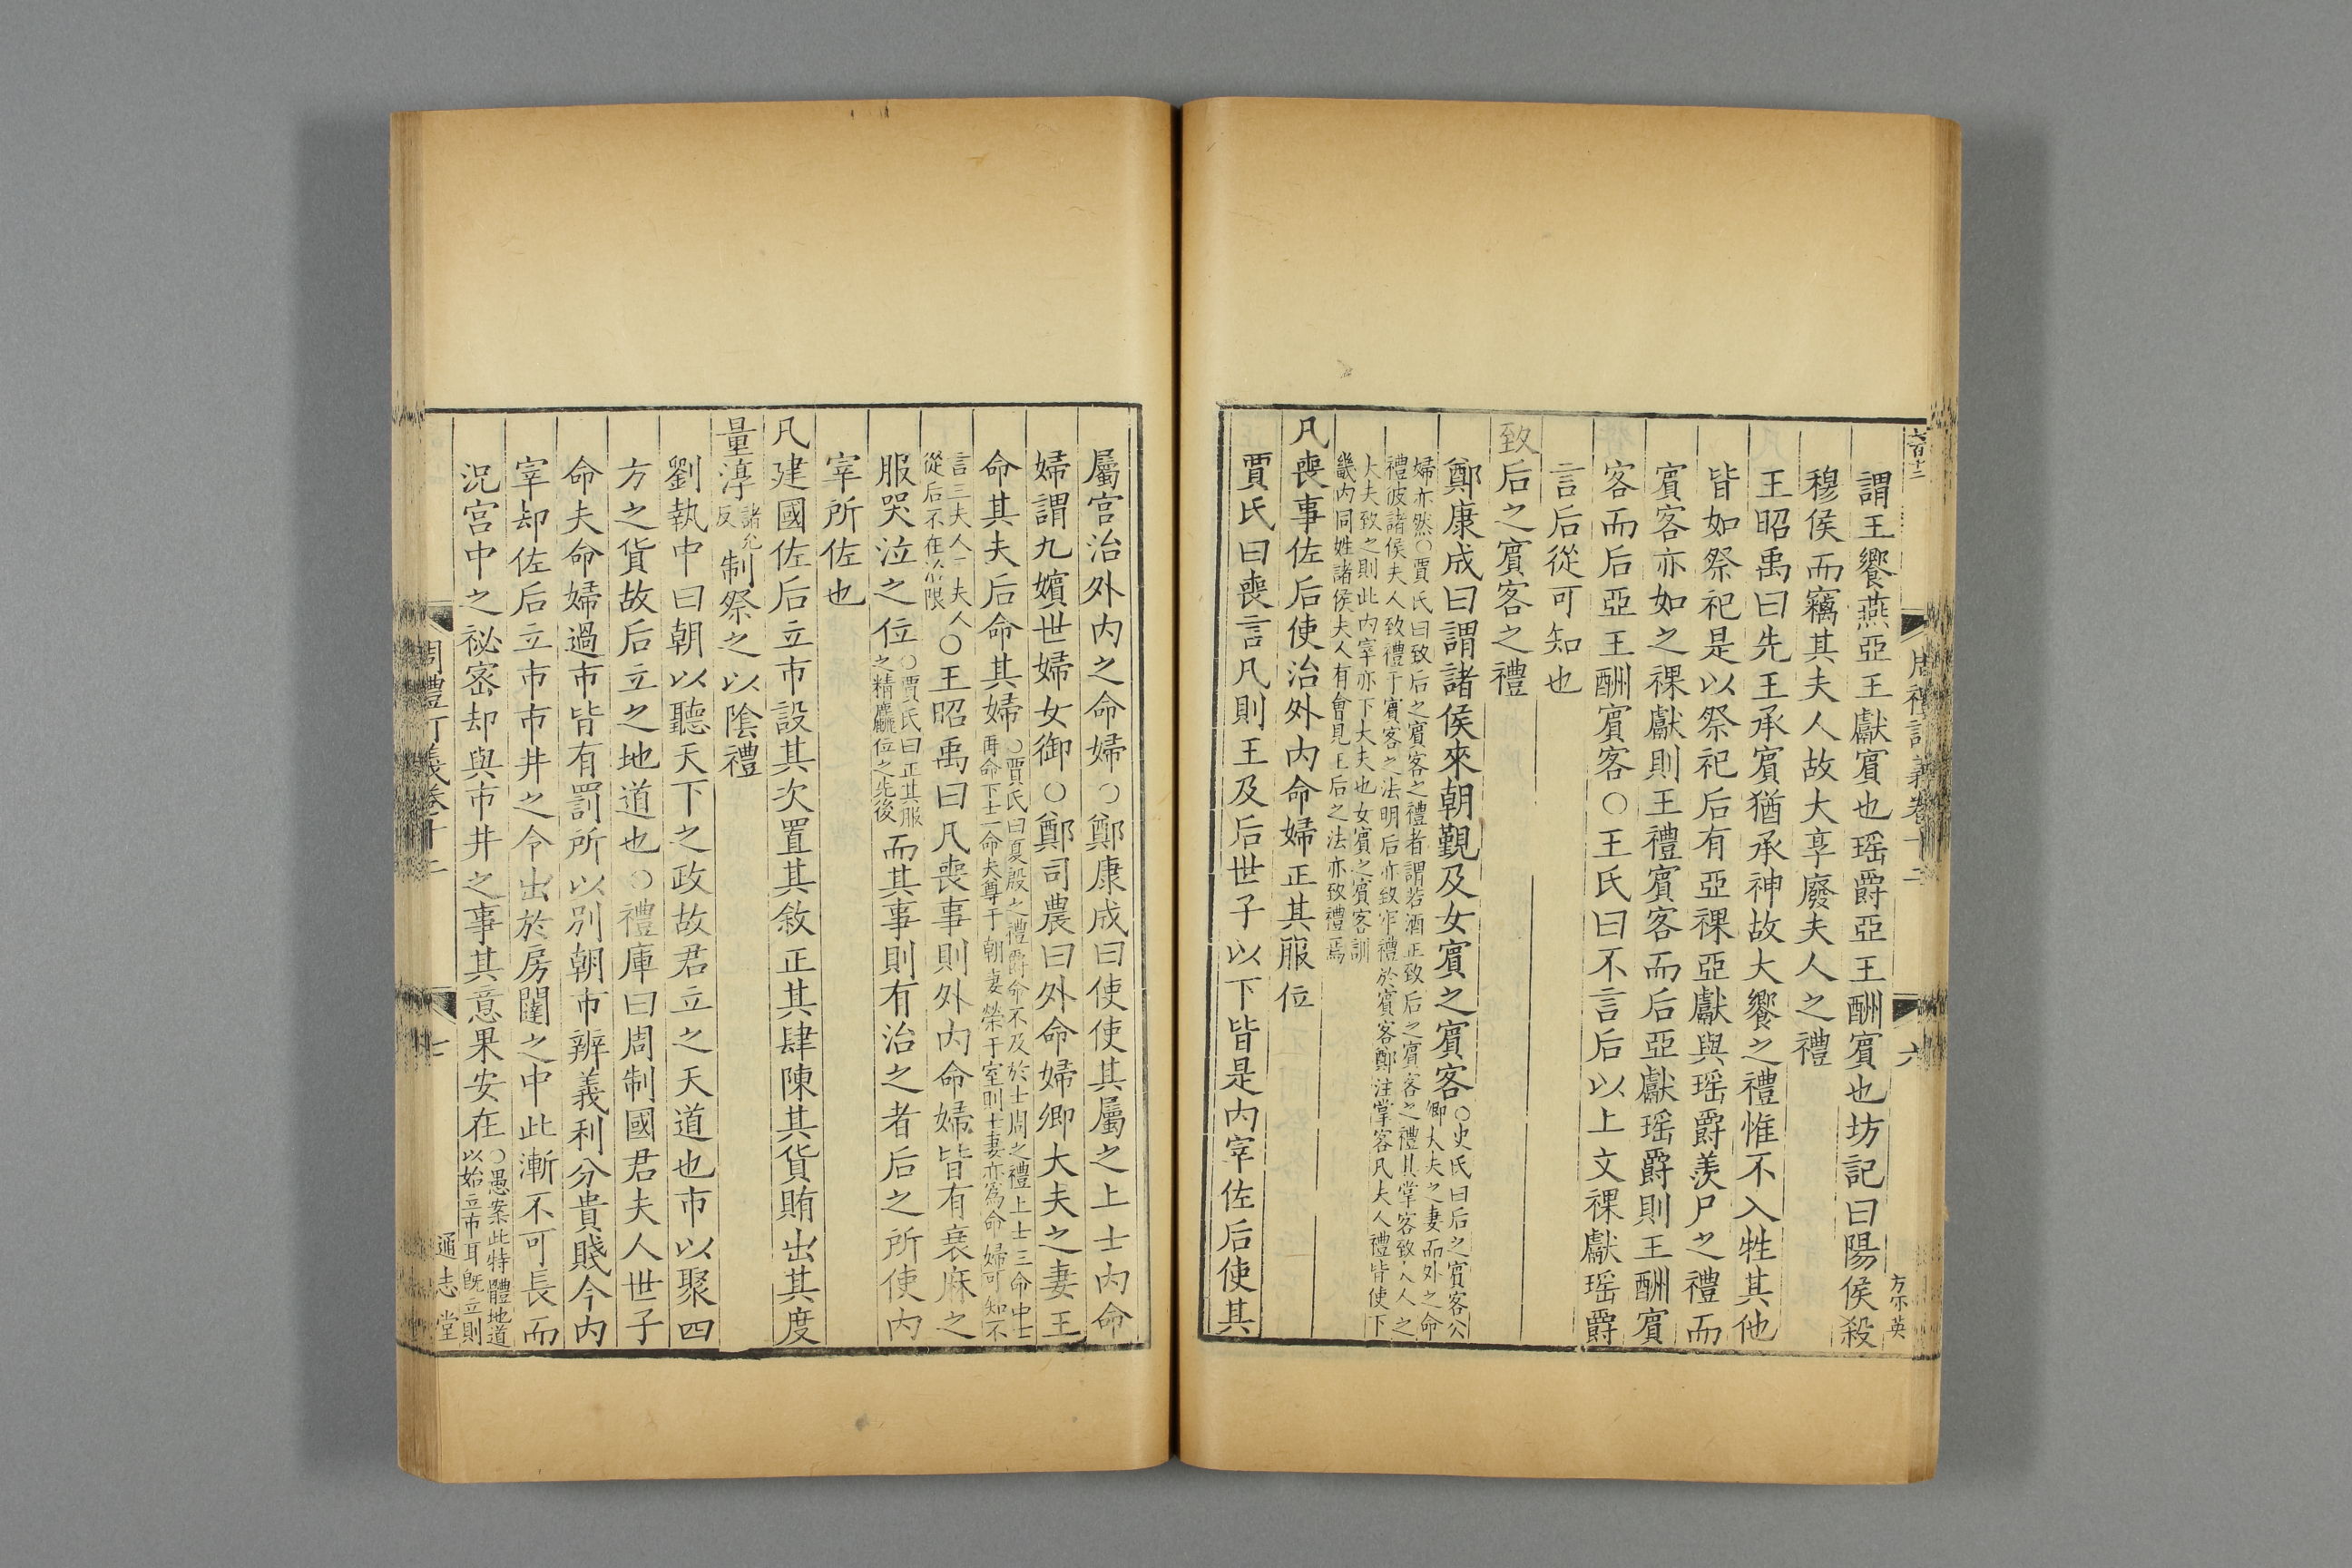 謂王饗燕亞王獻賔也瑶爵亞王酬賔也坊記曰陽侯殺
穆侯而竊其夫人故大享廢夫人之禮
王昭禹曰先王承賔猶承神故大饗之禮惟不入牲其他
皆如祭祀是以祭祀后有亞祼亞獻與瑶爵羨尸之禮而
賔客亦如之祼獻則王禮賔客而后亞獻瑶爵則王酬賔
客而后亞王酬賔客○王氏曰不言后以上文祼獻瑶爵
言后從可知也
致后之賔客之禮
鄭康成曰謂諸侯來朝覲及女賔之賔客○史氏曰后之賔客公
卿大夫之妻而外之命
婦亦然○賈氏曰致后之賔客之禮者謂若酒正致后之賔客之禮其掌客致人人之
禮彼諸侯夫人致禮于賔客之法明后亦致牢禮於賔客鄭注掌客凡夫人禮皆使下
大夫致之則此内宰亦下大夫也女賔之賔客訓
畿内同姓諸侯夫人有會見王后之法亦致禮焉
凡喪事佐后使治外内命婦正其服位
賈氏曰喪言凡則王及后世子以下皆是内宰佐后使其
六百十二
周禮訂義卷十二
六
方尓英
屬宫治外内之命婦○鄭康成曰使使其屬之上士内命
婦謂九嬪世婦女御○鄭司農曰外命婦卿大夫之妻王
命其夫后命其婦○賈氏曰夏殷之禮爵命不及於士周之禮上士三命中士
再命下士一命夫尊于朝妻榮于室則士妻亦爲命婦可知不
言三夫人三夫人
從后不在治限○王昭禹曰凡喪事則外内命婦皆有衰麻之
服哭泣之位○賈氏曰正其服
之精麤位之先後而其事則有治之者后之所使内
宰所佐也
凡建國佐后立市設其次置其敘正其肆陳其貨賄出其度
量淳諸允
反制祭之以陰禮
劉執中曰朝以聽天下之政故君立之天道也市以聚四
方之貨故后立之地道也○禮庫曰周制國君夫人世子
命夫命婦過市皆有罰所以别朝市辨義利分貴賤今内
宰却佐后立市市井之令出於房闥之中此漸不可長而
况宫中之祕宻却與市井之事其意果安在○愚案此特體地道
以始立市耳旣立則
周禮訂義卷十二
七
通志堂